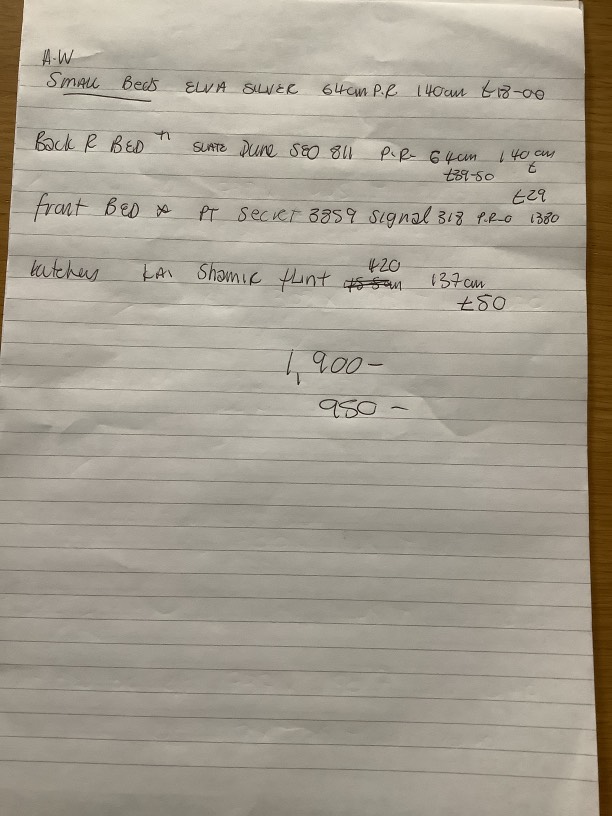 A.W
Small Beds ELVA SILVER 64cm P.R 140cm £18-00
Back R BED SLATE Dune 580 811 P.R- 64cm 140cm
£39-50 £
£29
front BED PT Secret 3859 Signal 318 P.R-0 1380
£20
kitchen KAI Shamik flint 137cm
£50
1,900-
950-